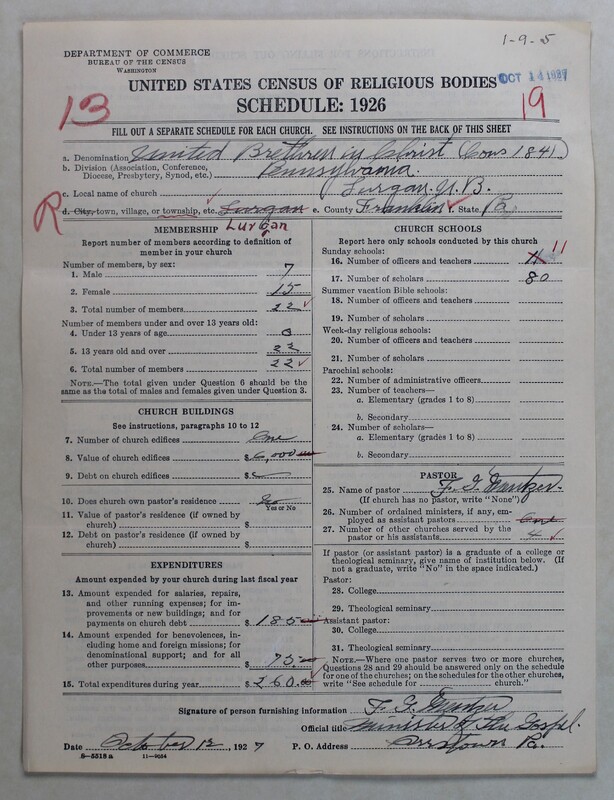 1-9-5
DEPARTMENT OF COMMERCE
BUREAU OF THE CENSUS
WASHINGTON
UNITED STATES CENSUS OF RELIGIOUS BODIES
OCT 14 1927
SCHEDULE: 1926
13
19
FILL OUT A SEPARATE SCHEDULE FOR EACH CHURCH. SEE INSTRUCTIONS ON THE BACK OF THIS SHEET
a. Denomination United Brethren in Christ (Cons 1841)
b. Division (Association, Conference, Diocese, Presbytery, Synod, etc.) Pennsylvania
c. Local name of church Lurgan U.B.
R
d. City, town, village, or township, etc. Lurgan e. County Franklin f. State Pa
Lurgan
MEMBERSHIP
Report number of members according to definition of member in your church
Number of members, by sex:
1. Male 7
2. Female 15
3. Total number of members 22
Number of members under and over 13 years old:
4. Under 13 years of age 0
5. 13 years old and over 22
6. Total number of members 22
NOTE.—The total given under Question 6 should be the same as the total of males and females given under Question 3.
CHURCH BUILDINGS
See instructions, paragraphs 10 to 12
7. Number of church edifices One
8. Value of church edifices $ 6,000
9. Debt on church edifices $
10. Does church own pastor's residence
Yes or No
11. Value of pastor's residence (if owned by church) $
12. Debt on pastor's residence (if owned by church) $
EXPENDITURES
Amount expended by your church during last fiscal year
13. Amount expended for salaries, repairs, and other running expenses; for improvements or new buildings; and for payments on church debt $ 185
14. Amount expended for benevolences, including home and foreign missions; for denominational support; and for all other purposes $ 75
15. Total expenditures during year $ 260.00
CHURCH SCHOOLS
Report here only schools conducted by this church
Sunday schools:
16. Number of officers and teachers 11 11
17. Number of scholars 80
Summer vacation Bible schools:
18. Number of officers and teachers
19. Number of scholars
Week-day religious schools:
20. Number of officers and teachers
21. Number of scholars
Parochial schools:
22. Number of administrative officers
23. Number of teachers—
a. Elementary (grades 1 to 8)
b. Secondary
24. Number of scholars—
a. Elementary (grades 1 to 8)
b. Secondary
PASTOR
25. Name of pastor F. G.
(If church has no pastor, write "None")
26. Number of ordained ministers, if any, employed as assistant pastors One
27. Number of other churches served by the pastor or his assistants 4
If pastor (or assistant pastor) is a graduate of a college or theological seminary, give name of institution below. (If not a graduate, write "No" in the space indicated.)
Pastor:
28. College
29. Theological seminary
Assistant pastor:
30. College
31. Theological seminary
NOTE.—Where one pastor serves two or more churches, Questions 28 and 29 should be answered only on the schedule for one of the churches; on the schedules for the other churches, write "See schedule for church."
Signature of person furnishing information F. G.
Official title Minister of The Gospel.
Date October 12, 1927 P. O. Address Orrstown Pa.
8-5518a 11-9054